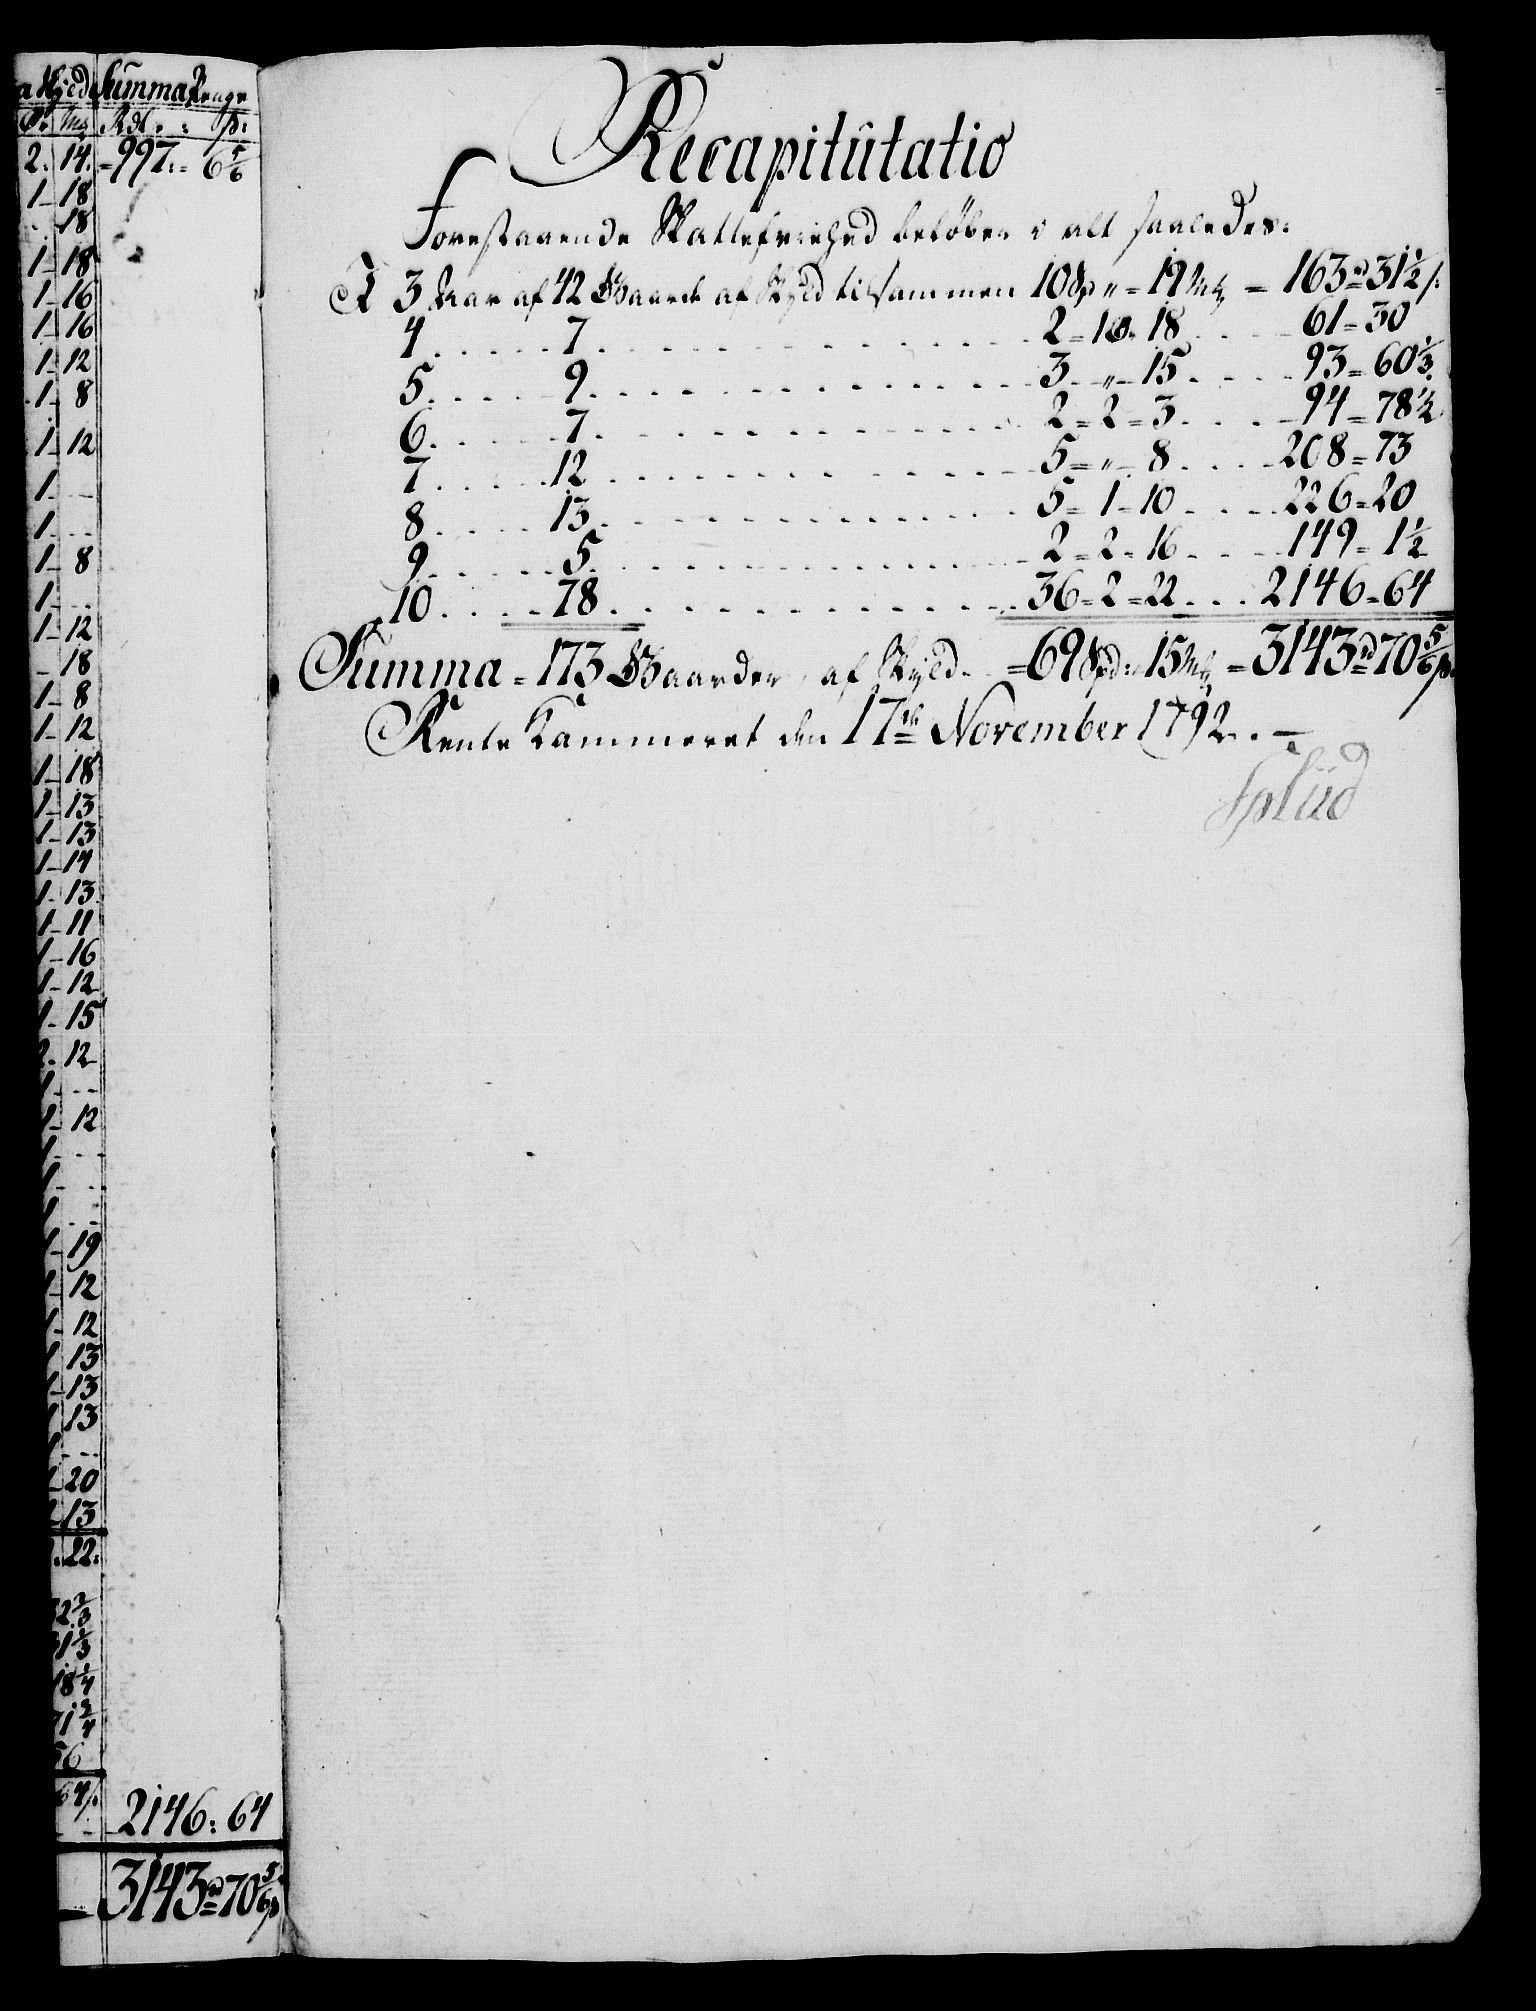 a Skyld Summa Penge
P. Mk Rdl. : ß:
2. 14. = 997. = 6 5/6
1 - 18
18
1 - 18
1 - 16
1 - 16
1 - 12
1 - 8
1 - 12
1 - ..
1 - ...
1 - 8
1 - ..
1 - 12
- 18
1 - 8
1 - 12
1 - 18
1 - 13
1 - 13
1 - 14
1 - 13
1 - 11
1 - 16
1 - 12
1 - 15
2. 12
12
19
12
12
13
13
13
20
13
. 22.
2 2/3
1 1/3
18 1/4
71 2/4
56
64 ß. 2146. 64
3143 rd 70 5/6 ß
Recapitulatio
Forestaaende Skattefriehed beløber i alt saaledes:
I 3 Aar af 42 Gaarde af Skyld tilsammen 10 Spd " = 19 Mk = 163 rd 31 1/2 ß.
4 ..... 7 ..... 2 = 1 = 18 .... 61 = 30
5 ..... 9 ..... 3 - " - 15 .... 93 = 60 1/3
6 ..... 7 ..... 2 = 2 = 3 .... 94 = 78 1/2
7 ..... 12 ..... 5 = " - 8 .... 208 = 73
8 ..... 13 ..... 5 = 1 - 10 .... 226 = 20
9 ..... 5 ..... 2 = 2 = 16 .... 149 = 1 1/2
10 ..... 78 ..... 36 = 2 = 22 ... 2146 = 64
Summa = 173 Gaarder, af Skyld. = 69 Spd: " 15 Mk = 3143 rd 70 5/6 ß.
Rente Kammeret den 17de November 1792. . —